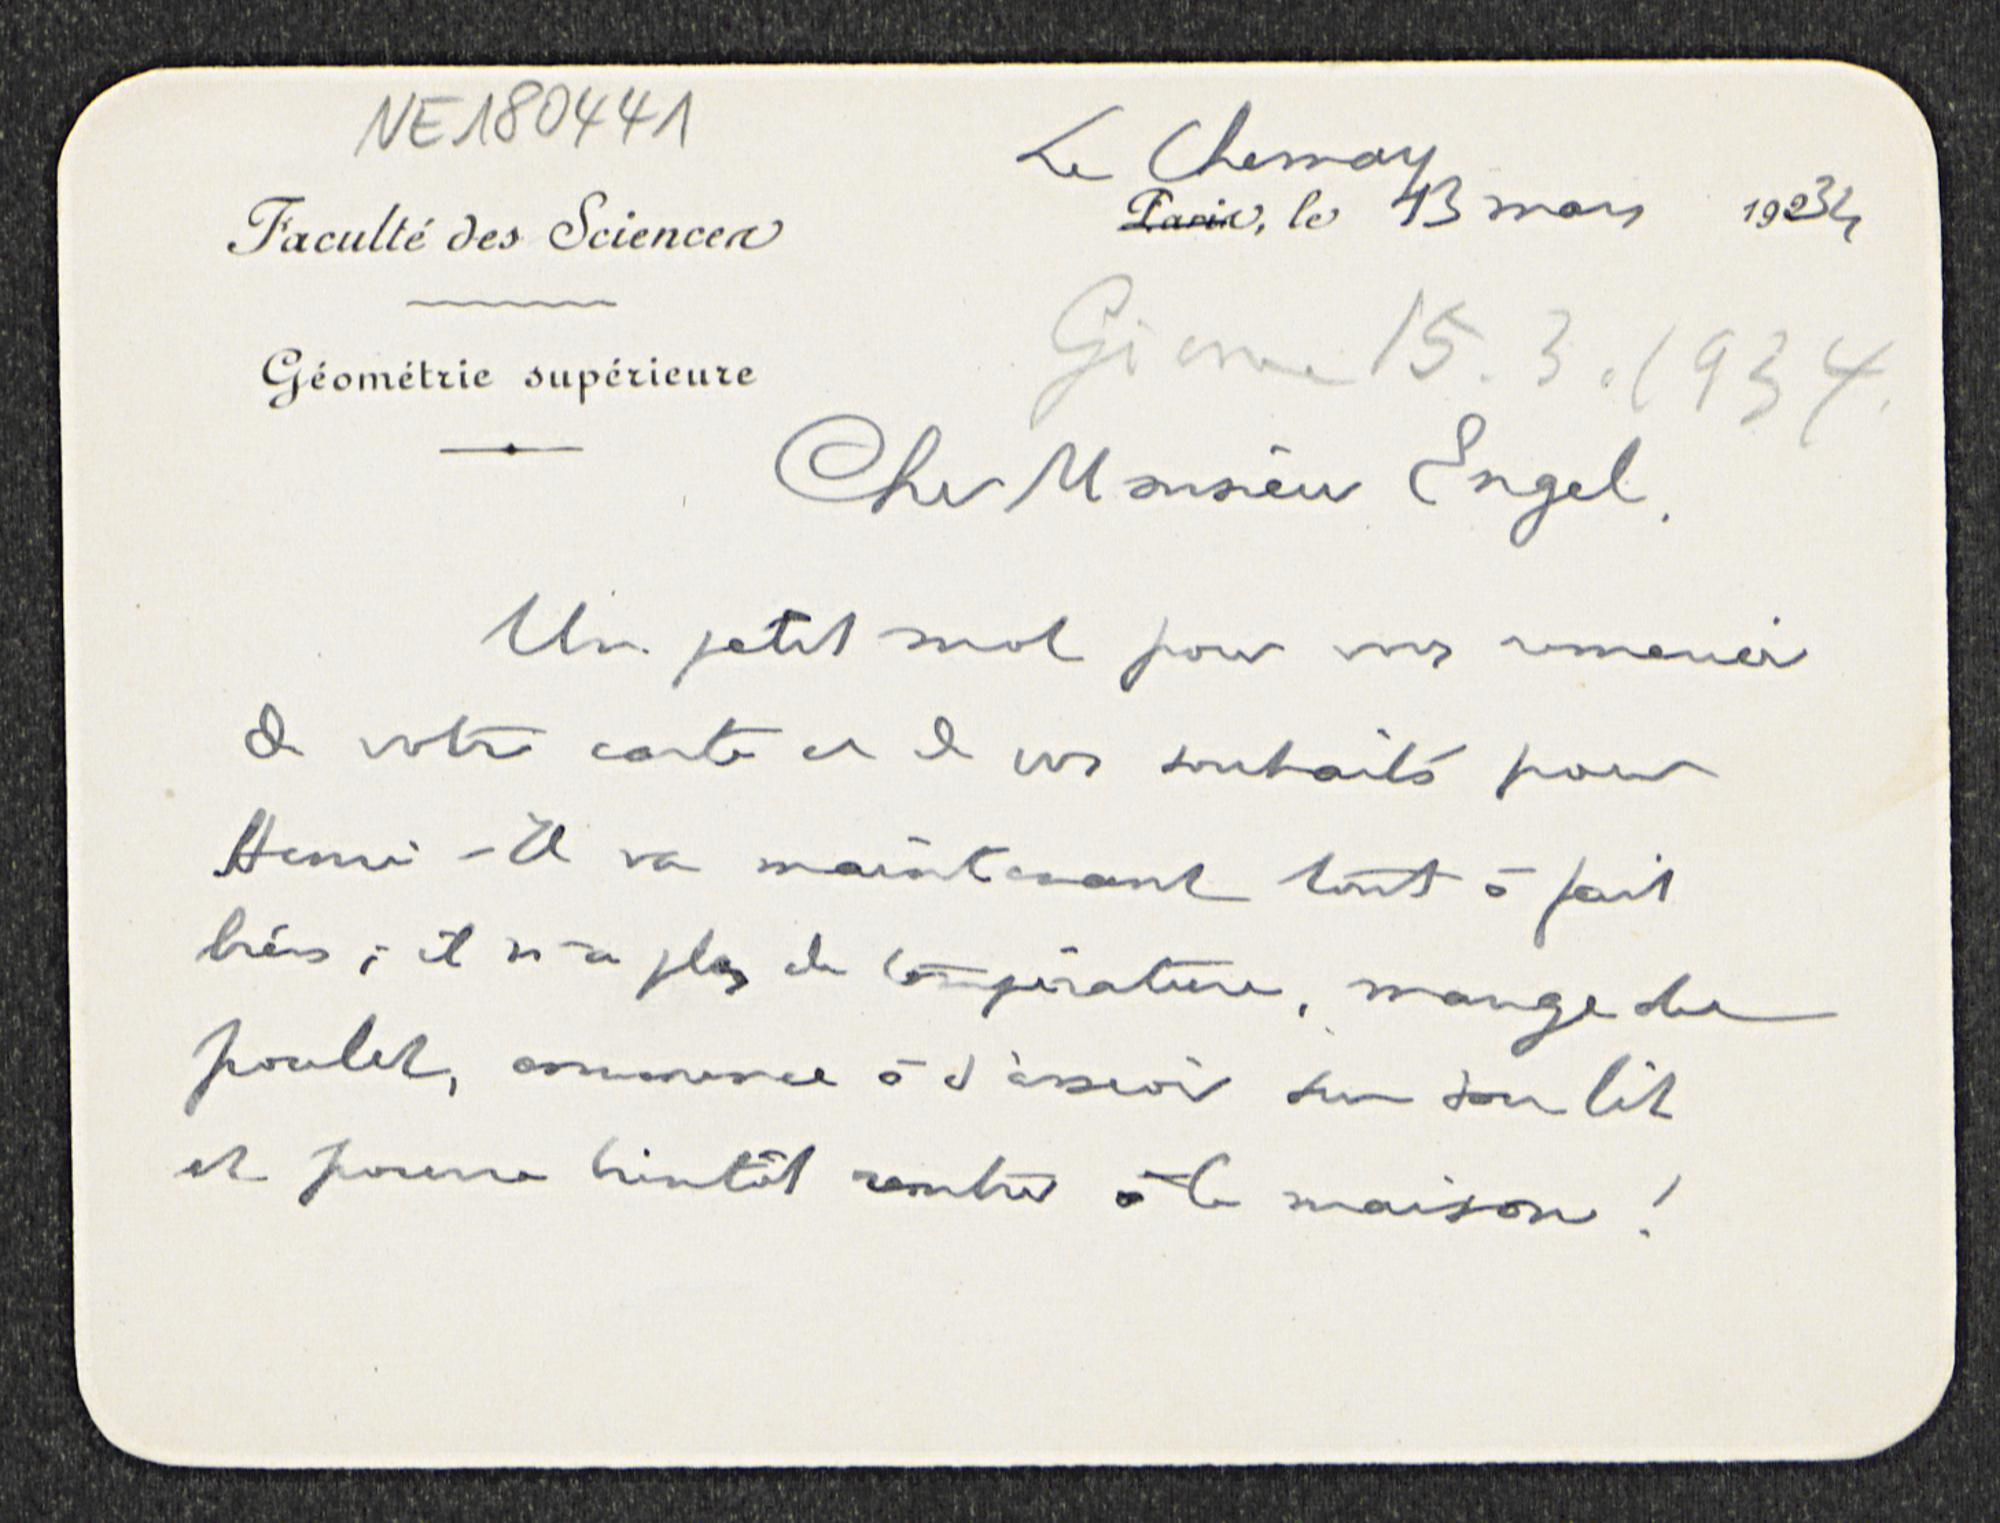 NE180441
Le Chesnay
Faculté des Sciences
Paris, le 13 mars 1934
Géométrie supérieure
15.3.1934.
Cher Monsieur Engel.
Un petit mot pour vous remercier
de votre carte et de vos souhaits pour
Henri - Il va maintenant tout à fait
bien ; il n'a plus de température, mange du
poulet, commence à s'asseoir sur son lit
et pourra bientôt rentrer à la maison !